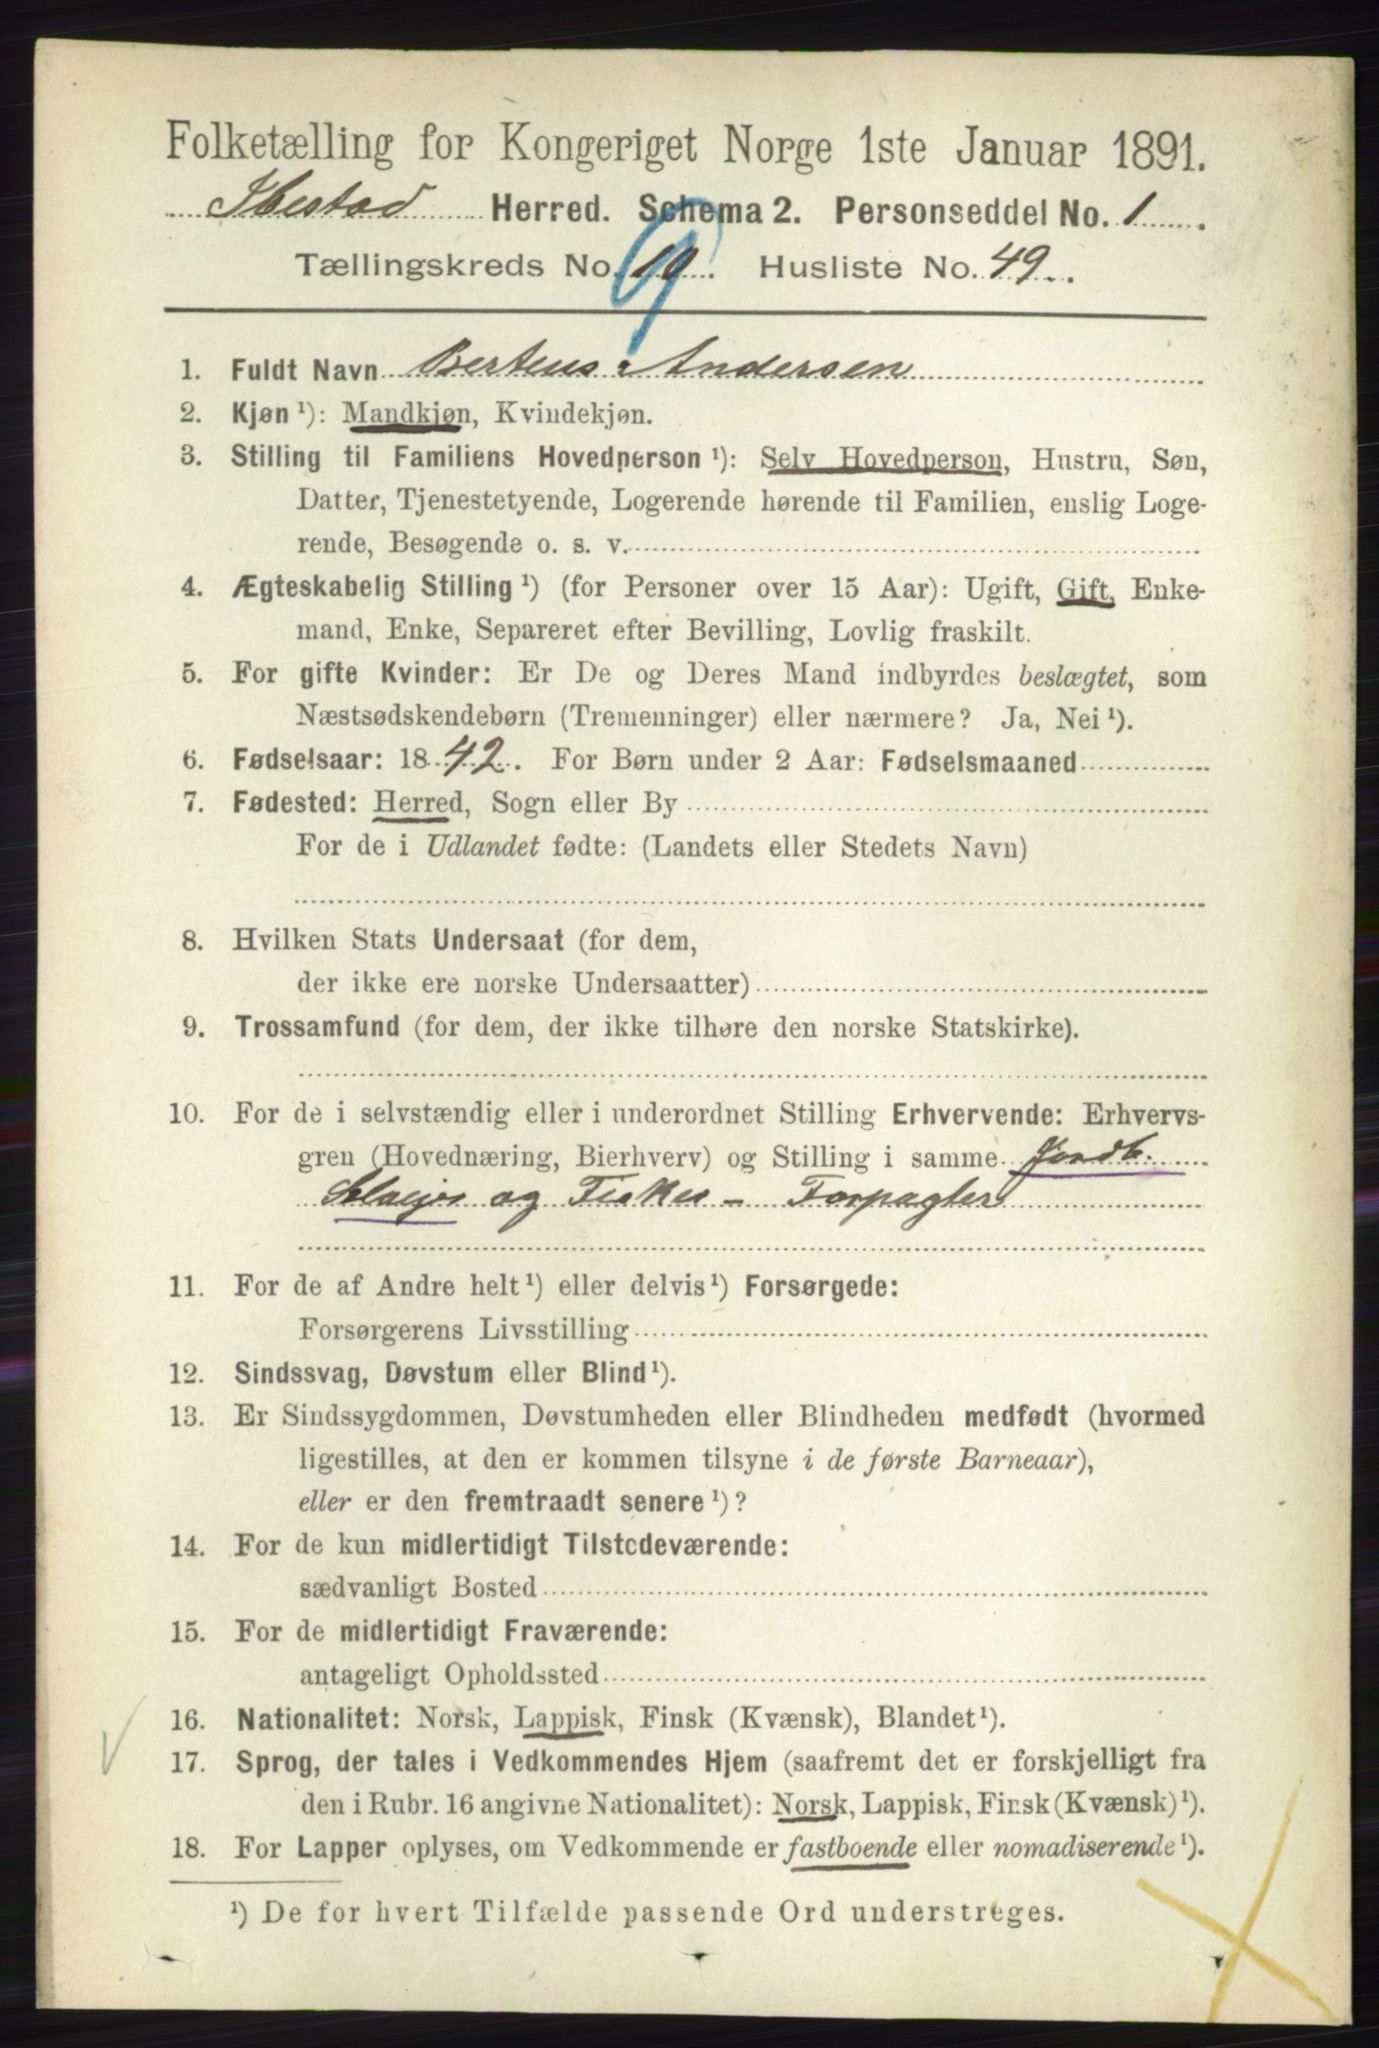 Folketælling for Kongeriget Norge 1ste Januar 1891.
Ibestad Herred. Schema 2. Personseddel No. 1.
Tællingskreds No. 10. Husliste No. 49.
9
1. Fuldt Navn Berteus Andersen
2. Kjøn ¹): Mandkjøn, Kvindekjøn.
3. Stilling til Familiens Hovedperson ¹): Selv Hovedperson, Hustru, Søn,
Datter, Tjenestetyende, Logerende hørende til Familien, enslig Loge-
rende, Besøgende o. s. v.
4. Ægteskabelig Stilling ¹) (for Personer over 15 Aar): Ugift, Gift, Enke-
mand, Enke, Separeret efter Bevilling, Lovlig fraskilt.
5. For gifte Kvinder: Er De og Deres Mand indbyrdes beslægtet, som
Næstsødskendebørn (Tremenninger) eller nærmere? Ja, Nei ¹).
6. Fødselsaar: 1842. For Børn under 2 Aar: Fødselsmaaned
7. Fødested: Herred, Sogn eller By
For de i Udlandet fødte: (Landets eller Stedets Navn)
8. Hvilken Stats Undersaat (for dem,
der ikke ere norske Undersaatter)
9. Trossamfund (for dem, der ikke tilhøre den norske Statskirke).
10. For de i selvstændig eller i underordnet Stilling Erhvervende: Erhvervs-
gren (Hovednæring, Bierhverv) og Stilling i samme Jordb.
Selveier og Fisker – Forpagter
11. For de af Andre helt ¹) eller delvis ¹) Forsørgede:
Forsørgerens Livsstilling
12. Sindssvag, Døvstum eller Blind ¹).
13. Er Sindssygdommen, Døvstumheden eller Blindheden medfødt (hvormed
ligestilles, at den er kommen tilsyne i de første Barneaar),
eller er den fremtraadt senere ¹)?
14. For de kun midlertidigt Tilstedeværende:
sædvanligt Bosted
15. For de midlertidigt Fraværende:
antageligt Opholdssted
16. Nationalitet: Norsk, Lappisk, Finsk (Kvænsk), Blandet ¹).
17. Sprog, der tales i Vedkommendes Hjem (saafremt det er forskjelligt fra
den i Rubr. 16 angivne Nationalitet): Norsk, Lappisk, Finsk (Kvænsk) ¹).
18. For Lapper oplyses, om Vedkommende er fastboende eller nomadiserende ¹).
¹) De for hvert Tilfælde passende Ord understreges.